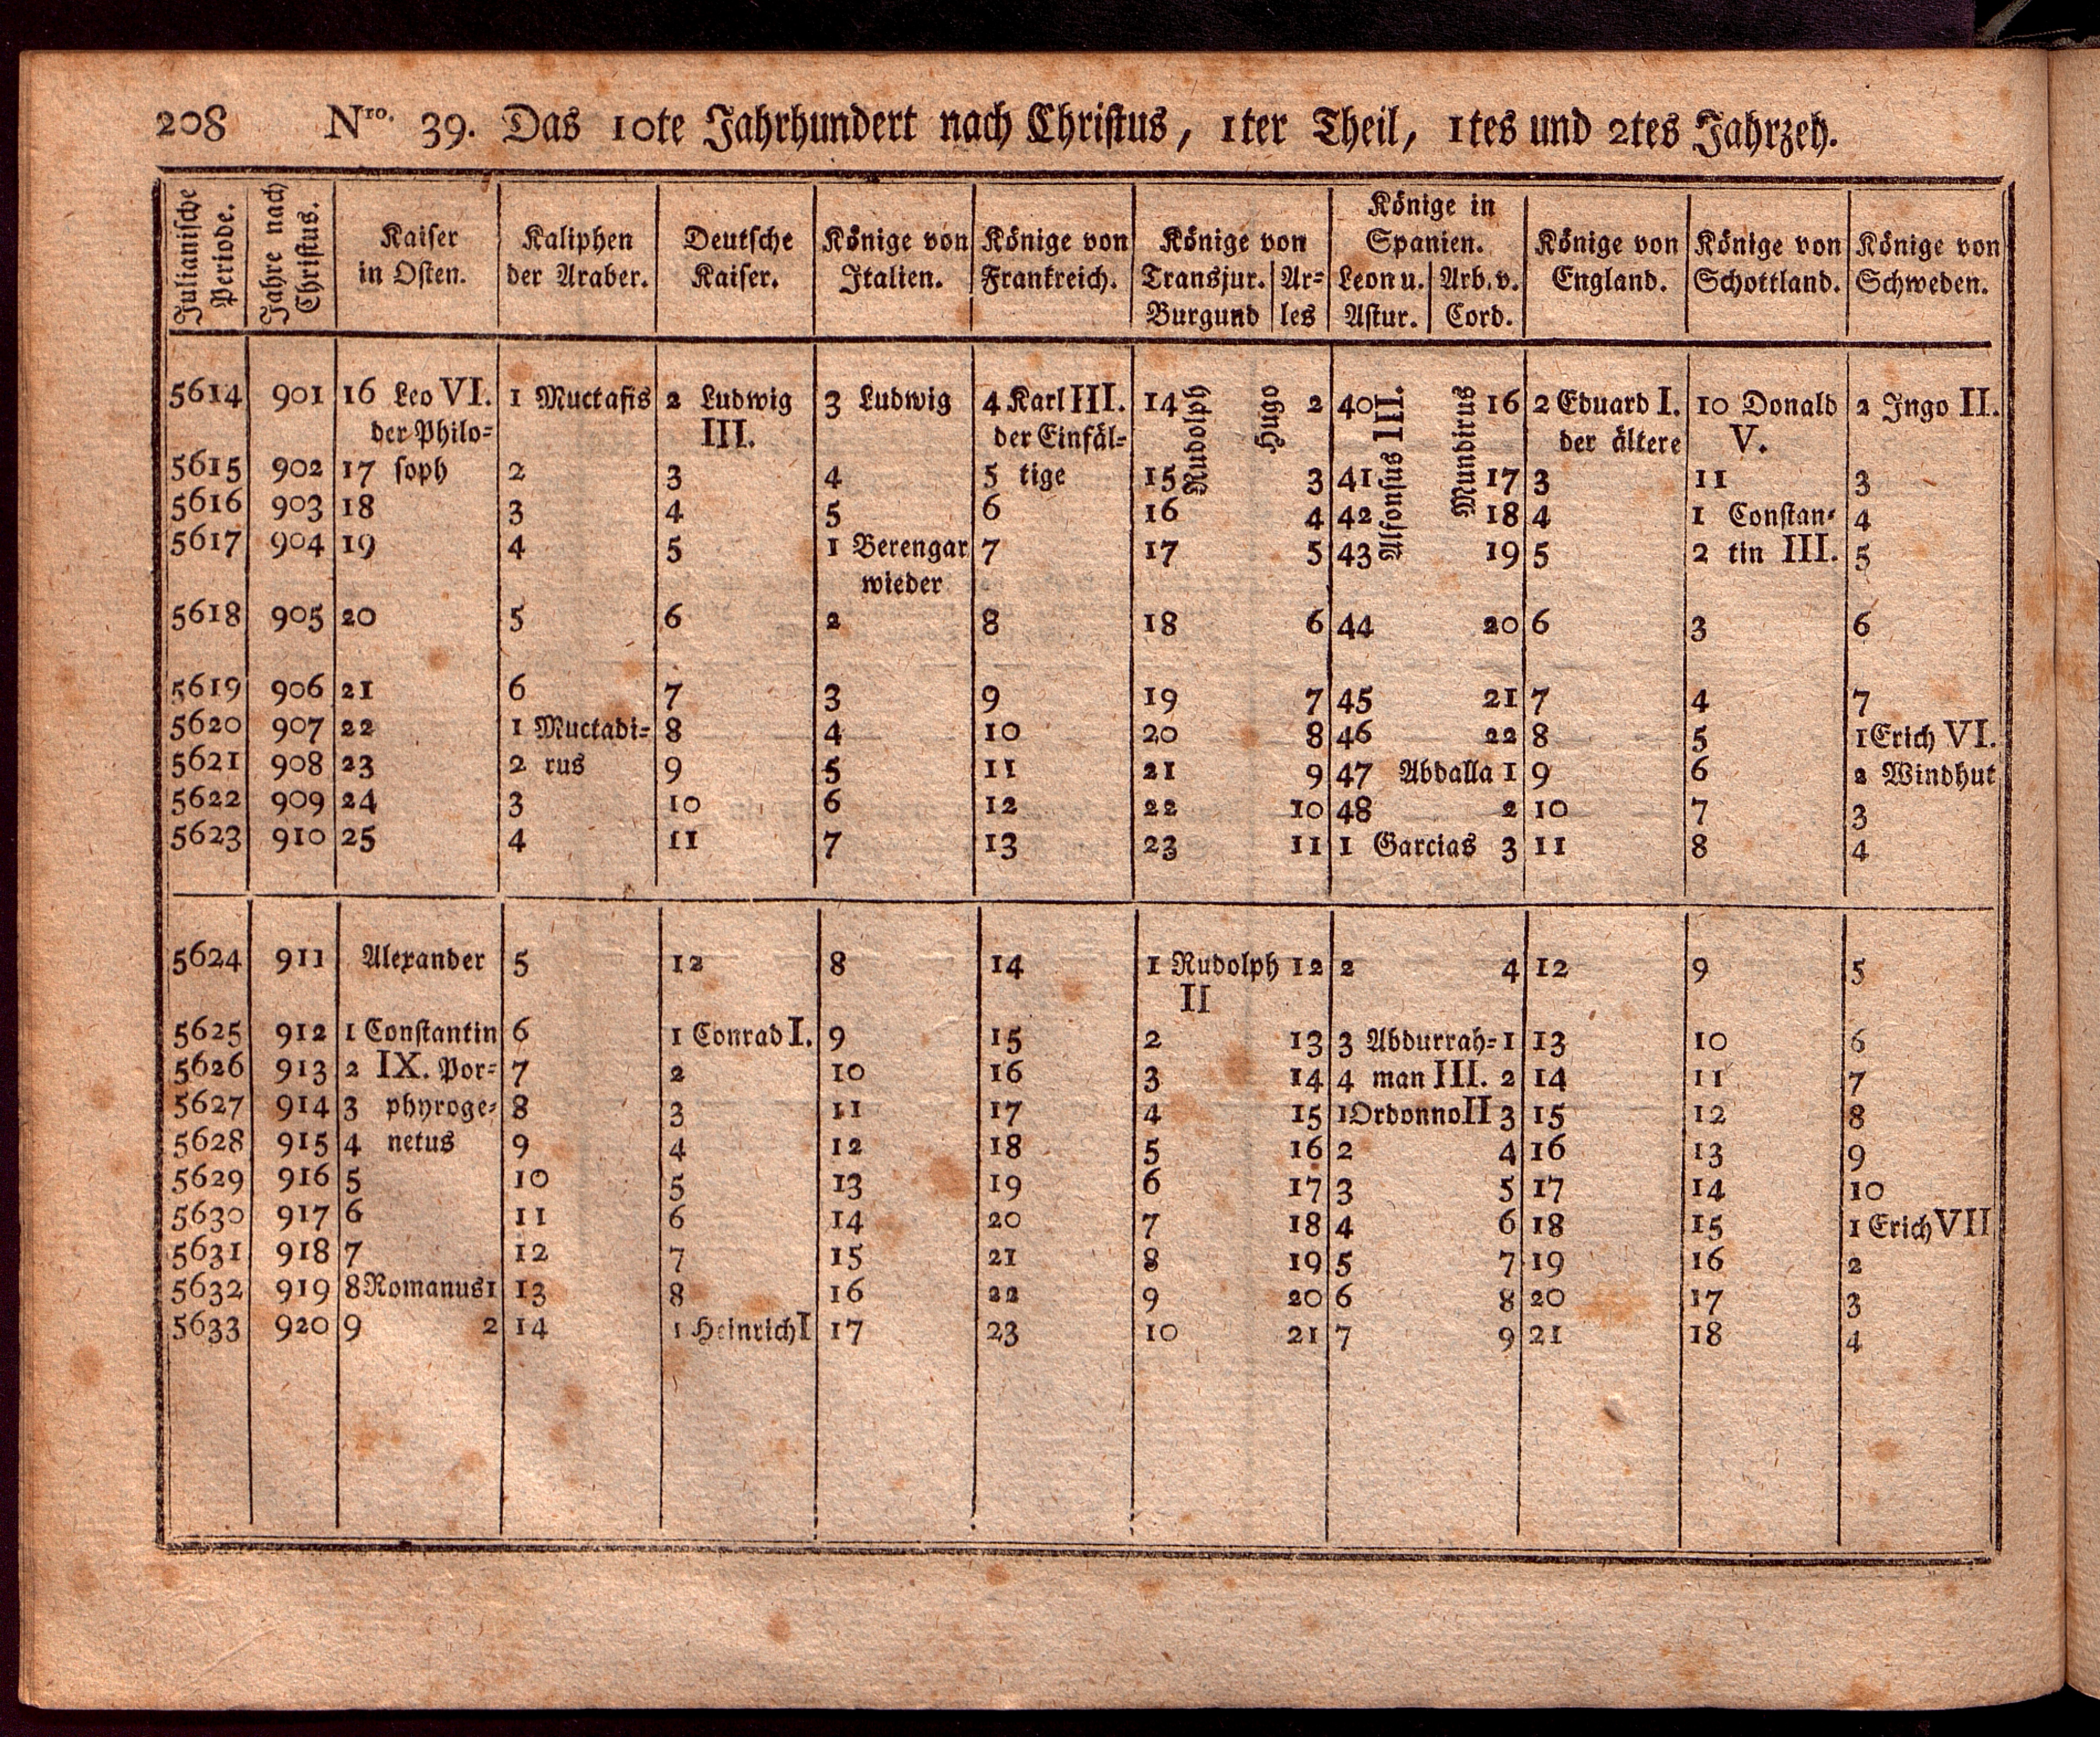 208 Nro. 39. Das 10te Jahrhundert nach Christus, 1ter Theil, 1tes und 2tes Jahrzeh.
Julianische Periode.
Jahre nach Christus.
Kaiser in Osten.
Kaliphen der Araber.
Deutsche Kaiser.
Könige von Italien.
Könige von Frankreich.
Könige von Transjur. Burgund | Ar=les
Könige in Spanien. Leon u. Astur. | Arb. v. Cord.
Könige von England.
Könige von Schottland.
Könige von Schweden.
5614 901 16 Leo VI. 1 Muctafis 2 Ludwig 3 Ludwig 4 Karl III. 14 Rudolph Hugo 2 40 Alfonsus III. Mundirus 16 2 Eduard I. 10 Donald 2 Ingo II.
der Philo= III. der Einfäl= der ältere V.
5615 902 17 soph 2 3 4 5 tige 15 3 41 17 3 11 3
5616 903 18 3 4 5 6 16 4 42 18 4 1 Constan= 4
5617 904 19 4 5 1 Berengar 7 17 5 43 19 5 2 tin III. 5
wieder
5618 905 20 5 6 2 8 18 6 44 20 6 3 6
5619 906 21 6 7 3 9 19 7 45 21 7 4 7
5620 907 22 1 Muctadi= 8 4 10 20 8 46 22 8 5 1 Erich VI.
5621 908 23 2 rus 9 5 11 21 9 47 Abdalla 1 9 6 2 Windhut
5622 909 24 3 10 6 12 22 10 48 2 10 7 3
5623 910 25 4 11 7 13 23 11 1 Garcias 3 11 8 4
5624 911 Alexander 5 12 8 14 1 Rudolph 12 2 4 12 9 5
II
5625 912 1 Constantin 6 1 Conrad I. 9 15 2 13 3 Abdurrah= 1 13 10 6
5626 913 2 IX. Por= 7 2 10 16 3 14 4 man III. 2 14 11 7
5627 914 3 phyroge= 8 3 11 17 4 15 1 Ordonno II 3 15 12 8
5628 915 4 netus 9 4 12 18 5 16 2 4 16 13 9
5629 916 5 10 5 13 19 6 17 3 5 17 14 10
5630 917 6 11 6 14 20 7 18 4 6 18 15 1 Erich VII
5631 918 7 12 7 15 21 8 19 5 7 19 16 2
5632 919 8 Romanus 1 13 8 16 22 9 20 6 8 20 17 3
5633 920 9 2 14 1 Heinrich I 17 23 10 21 7 9 21 18 4